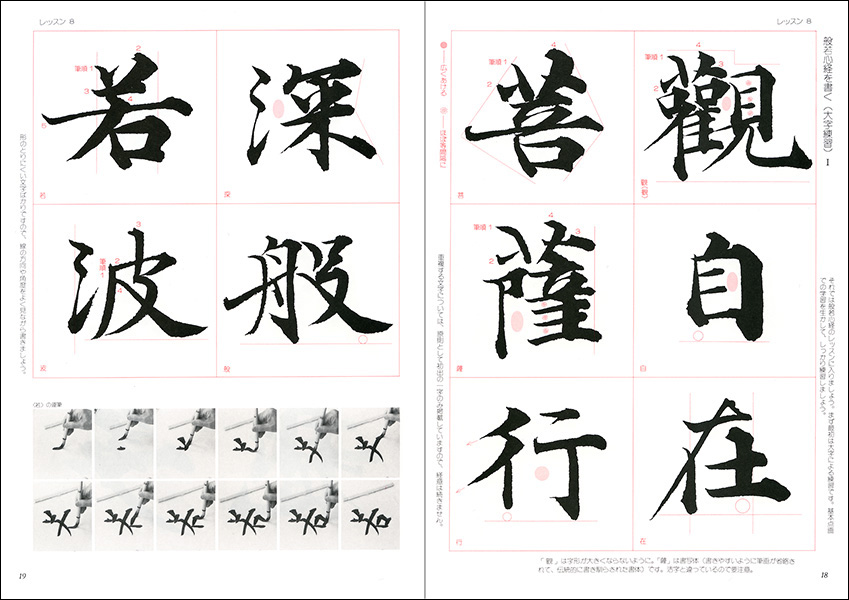 レッスン 8
般若心経を書く（大字練習）1
それでは般若心経のレッスンに入りましょう。まず最初は大字による練習です。基本点画
での学習を生かして、しっかり練習しましょう。
觀
筆順 1
2
3
4
観（観）
自
自
在
在
菩
筆順 1
2
3
4
菩
薩
筆順 1
2
3
4
薩
行
行
「観」は字形が大きくならないように。「薩」は書写体（書きやすいように筆画が省略さ
れて、伝統的に書き継らされた書体）です。活字と違っているので要注意。
18
レッスン 8
広くあける
ほぼ等間隔に
重複する文字については、原則として初出の一字のみ掲載していますので、経意は続きません。
深
深
般
般
若
筆順 1
2
3
4
5
若
波
筆順 1
2
3
4
波
形のとりにくい文字ばかりですので、線の方向や角度をよく見ながら書きましょう。
〈若〉の運筆
19